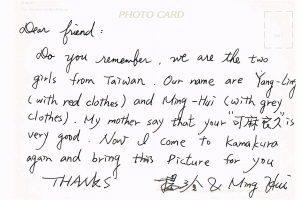 PHOTO CARD
Dear friend:
Do you remember, we are the two
girls from Taiwan. Our name are Yang-Ling
(with red clothes) and Ming-Hui (with grey
clothes). My mother say that your "可麻良久" is
very good. Now I come to Kamakura
again and bring this Picture for you
THANKS & Ming Hui